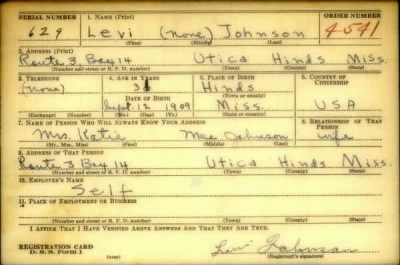 SERIAL NUMBER 1. NAME (Print) ORDER NUMBER
629 Levi (none) Johnson 4541
(First) (Middle) (Last)
2. ADDRESS (Print)
Route 3, Box 14 Utica Hinds Miss.
(Number and street or R. F. D. number) (Town) (County) (State)
3. TELEPHONE 4. AGE IN YEARS 5. PLACE OF BIRTH 6. COUNTRY OF CITIZENSHIP
(none) 31 Hinds
DATE OF BIRTH (Town or county)
Sept. 12 1909 Miss. USA
(Exchange) (Number) (Mo.) (Day) (Yr.) (State or country)
7. NAME OF PERSON WHO WILL ALWAYS KNOW YOUR ADDRESS 8. RELATIONSHIP OF THAT PERSON
Mrs. Katie Mae Johnson wife
(Mr., Mrs., Miss) (First) (Middle) (Last)
9. ADDRESS OF THAT PERSON
Route 3 Box 14 Utica Hinds Miss.
(Number and street or R. F. D. number) (Town) (County) (State)
10. EMPLOYER'S NAME
Self
11. PLACE OF EMPLOYMENT OR BUSINESS
(Number and street or R. F. D. number) (Town) (County) (State)
I AFFIRM THAT I HAVE VERIFIED ABOVE ANSWERS AND THAT THEY ARE TRUE.
REGISTRATION CARD Levi Johnson
D. S. S. Form 1 (Registrant's signature)